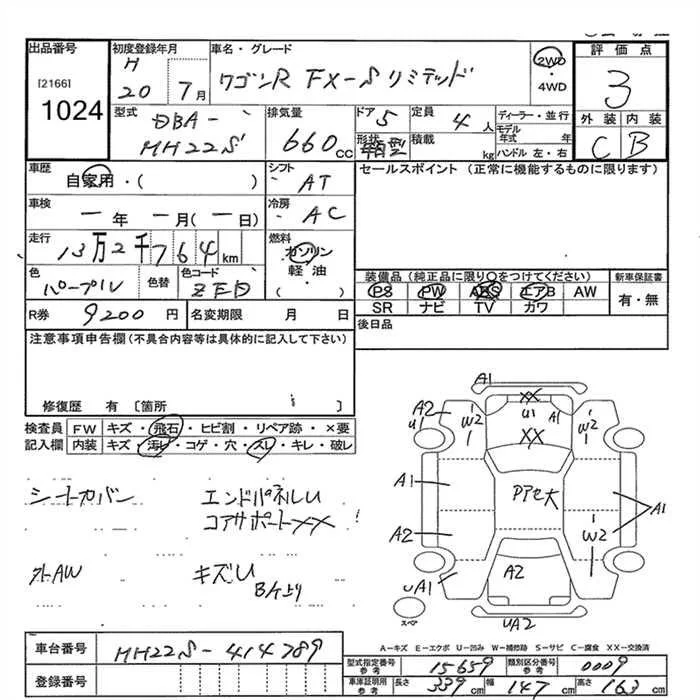 出品番号
[2166]
1024
初度登録年月
H
20 7月
車名・グレード
ワゴンR FX-Sリミテッド
2WD
・
4WD
評価点
3
外装 内装
C B
型式
DBA-
MH22S
排気量
660cc
ドア 5
形状 箱型
定員 4人
積載 kg
ディーラー・並行
モデル年式 年
ハンドル 左・右
車歴
自家用・( )
シフト
AT
セールスポイント (正常に機能するものに限ります)
車検
ー年 ー月(ー日)
冷房
AC
走行
13万2千764km
燃料
ガソリン
軽油
・( )
色
パープル
色替
色コード
ZED
装備品 (純正品に限り○をつけてください)
PS PW ABS エアB AW
SR ナビ TV カワ
新車保証書
有・無
R券 9200円
名変期限 月 日
後日品
注意事項申告欄(不具合内容等は具体的に記入して下さい)
修復歴 有 [箇所 ]
検査員記入欄
FW キズ・飛石・ヒビ割・リペア跡・×要
内装 キズ・汚レ・コゲ・穴・スレ・キレ・破レ
シートカバン
エンドパネルU
コアサポートXX
外AW
キズU
Bケ上り
A1
XX
U1
A1
A2
U1
W2
W2
XX
A1
A2
A1
W2
A2
uA1
UA2
スペア
A-キズ E-エクボ U-凹み W-補修跡 S-サビ C-腐食 XX-交換済
車台番号
MH22S-414789
登録番号
型式指定番号
参考
15659
類別区分番号
参考
0009
車庫証明用
参考
長さ 339cm
幅 147cm
高さ 163cm